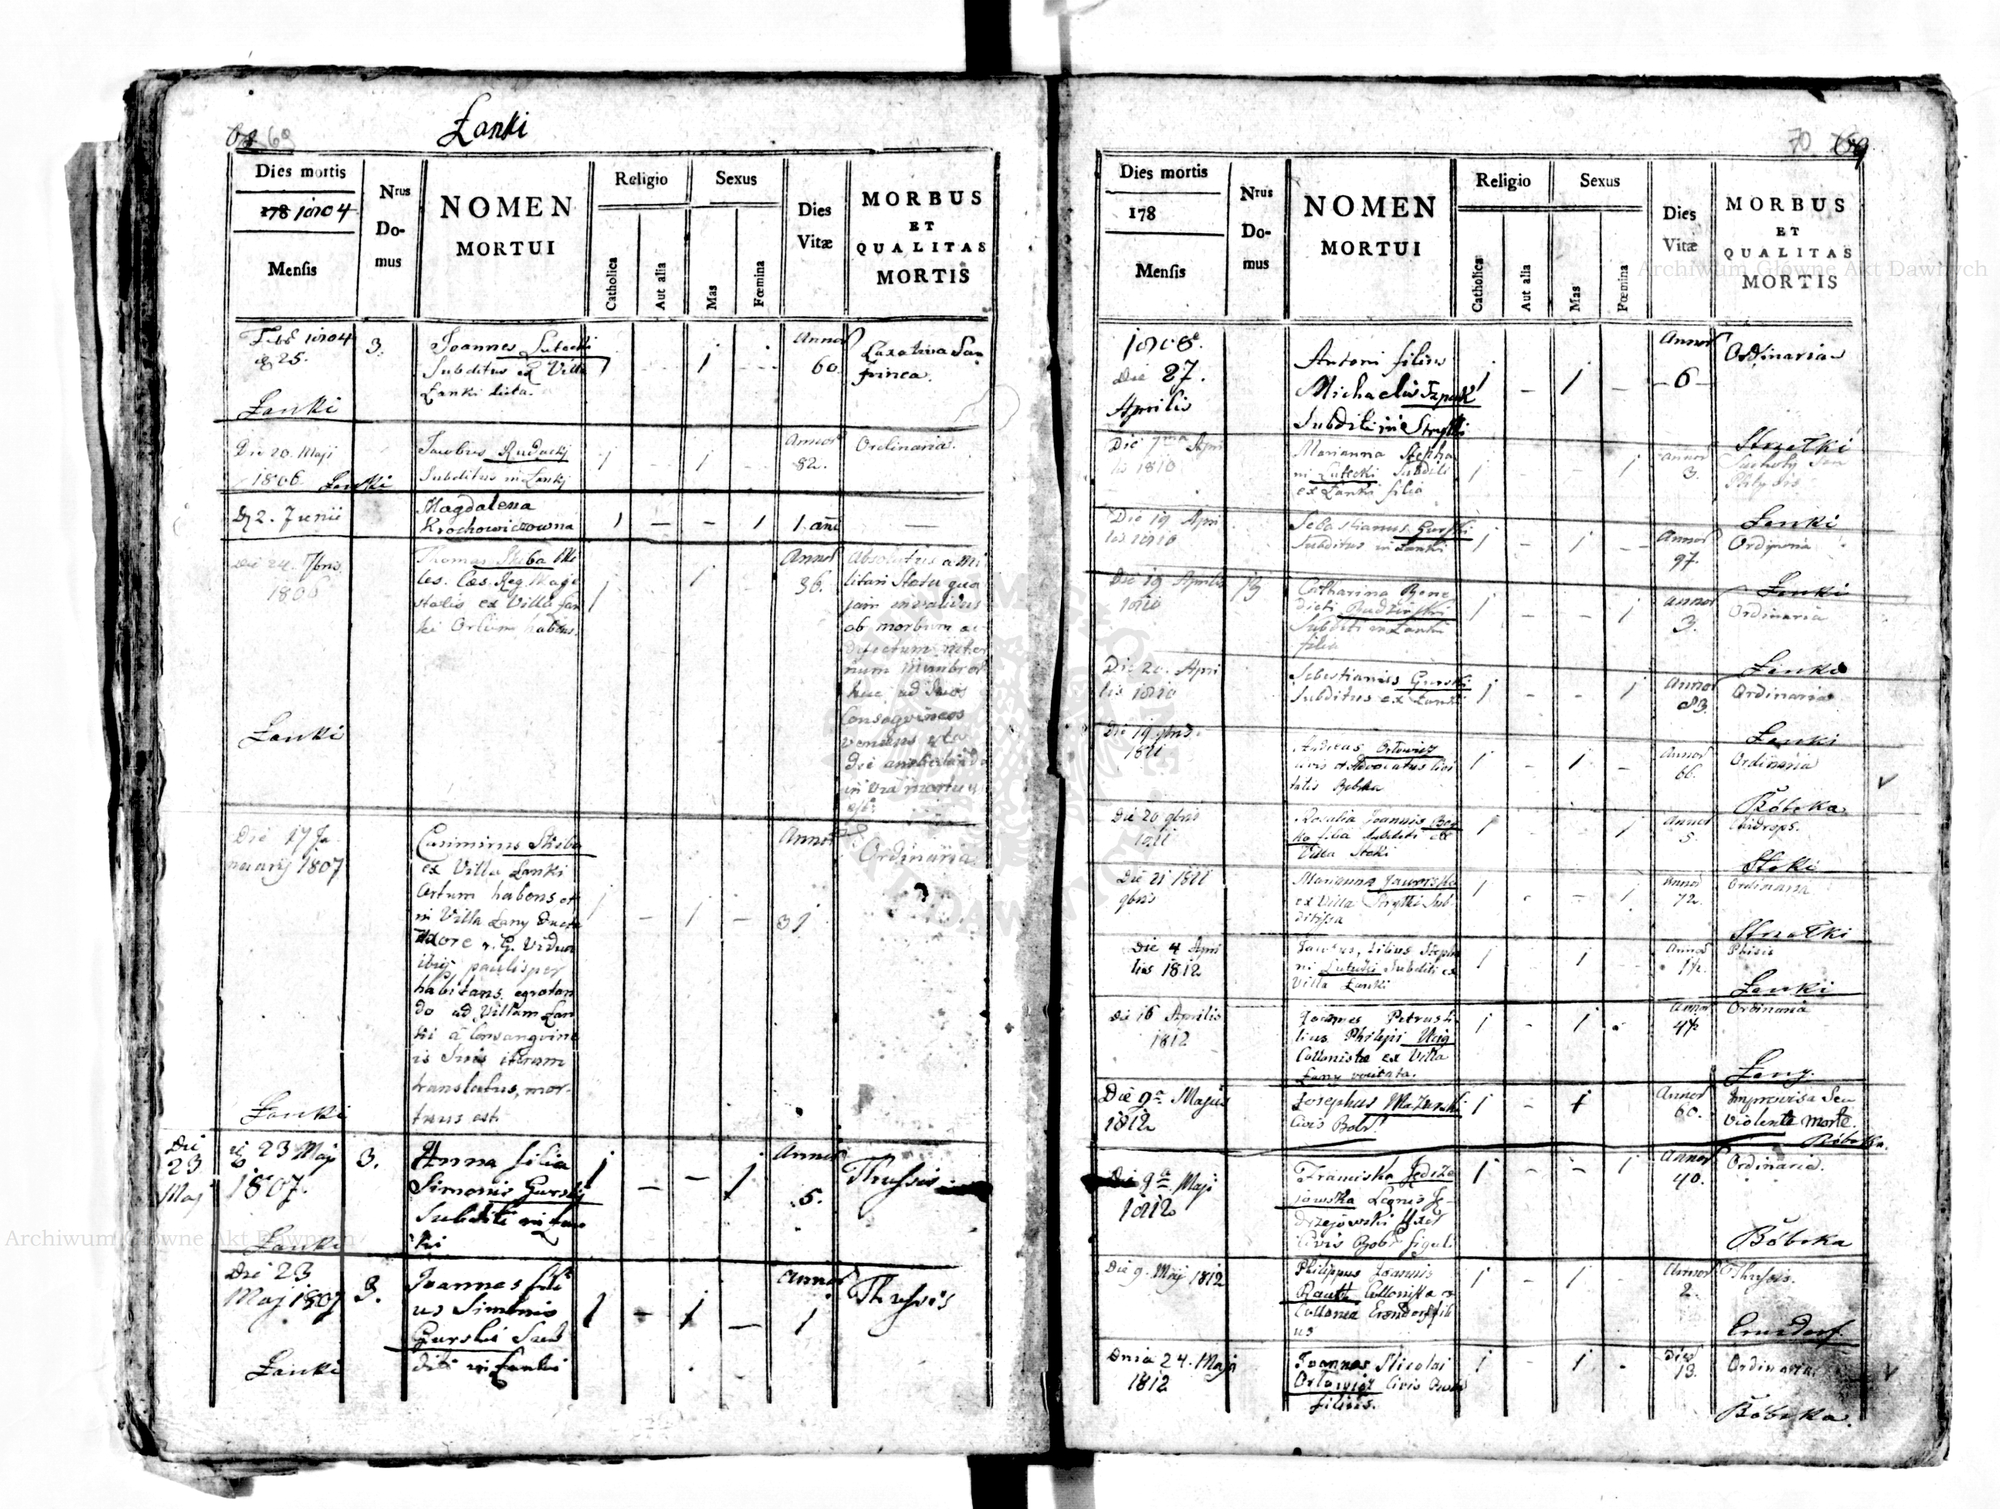 Łanki
68 69
Dies mortis
178 1804
Mensis
Nrus
Do-
mus
NOMEN
MORTUI
Religio
Catholica
Aut alia
Sexus
Mas
Fœmina
Dies
Vitæ
MORBUS
ET
QUALITAS
MORTIS
Feb 1804
25.
Łanki
3.
Joannes Lutecki
Subditus ex Villa
Łanki dicta
1
1
Annor
60.
Laxativa San
guinea.
Die 20. Maji
1806 Łanki
Jacobus Ruducki
Subditus in Łanki
1
1
Annor
82.
Ordinaria.
2. Junii
Magdalena
Krochowiczowna
1
1
1. ann
Die 24. 7bris
1806
Łanki
Thomas Skiba Mi
les. Cæs. Reg. Maje
statis ex Villa Łan
ki Ortum habens.
1
1
Annor
36.
Absolutus a Mi
litari Statu qua
jam invalidus
ob morbum ac
defectum
num membror
huc ad suos
Consaguineos
veniens
in via mortuus
Die 17 Ja
nuarij 1807
Łanki
Casimirus Skiba
ex Villa Łanki
Ortum habens et
in Villa Łany
G. Vidua
ibiq paulisper
habitans. egrotan
do ad Villam Łan
ki a Consanguine
is Suis iterum
translatus, mor-
tuus est.
1
1
Annor
31
Ordinaria
Die
23
Maj
23 Maj
1807.
Łanki
3.
Anna filia
Simonis Gurski
Subditi in Łan
ki
1
1
Annor
5.
Thussis
Die 23
Maj 1807
Łanki
3.
Joannes fili
us Simonis
Gurski Sub
diti in Łanki
1
1
Annor
1
Thussis
70 69
Dies mortis
178
Mensis
Nrus
Do-
mus
NOMEN
MORTUI
Religio
Catholica
Aut alia
Sexus
Mas
Fœmina
Dies
Vitæ
MORBUS
ET
QUALITAS
MORTIS
1808.
Die 27.
Aprilis
Antoni filius
Michaelis Szpak
Subditi in Strzałki
1
1
Annor
6
Ordinaria
Strzałki
Die 7ma Apri
lis 1810
Marianna Stepha
ni Lutecki Subditi
ex Łanki filia
1
1
Annor
3.
Łanki
Die 19 Apri
lis 1810
Sebastianus Gurski
Subditus in Łanki
1
1
Annor
97.
Ordinaria
Łanki
Die 19 Aprilis
1810
13
Catharina Bene
dicti Rudzinski
Subditi in Łanki
filia
1
1
Annor
3.
Ordinaria
Łanki
Die 20. Apri
lis 1810
Sebestianus Gurski
Subditus ex Łanki
1
1
Annor
83.
Ordinaria
Łanki
Die 19 gbris.
1811
Andreas Orłowicz
Civis et Advocatus Civi
tatis Bobrka
1
1
Annor
66.
Ordinaria
Bóbrka
Die 20 gbris
1811
Rosalia Joannis
filia Subditi ex
Villa Stoki
1
1
Annor
5.
Hidrops.
Stoki
Die 21 1811
gbris
Marianna Jaworska
ex Villa Strzałki Sub
ditissa
1
1
Annor
72.
Ordinaria
Strzałki
Die 4 Apri
lis 1812
Jacobus, filius Stepha
ni Lutecki Subditi ex
Villa Łanki
1
1
Annor
Phisis
Łanki
Die 16 Aprilis
1812
Joannes Petrus fi
lius Philipi
Collonista ex Villa
Łany
1
1
Annor
47.
Ordinaria
Łany.
Die 9a Majus
1812
Josephus Mazurski
Civis Bobr.
1
1
Annor
60.
Improvisa Seu
Violenta morte.
Bobrka.
Die 9a Maji
1812
Franciska Jędrze
jowska Agnis Ję
drzejowski Uxor
Civis Bobr. figuli
1
1
Annor
40.
Ordinaria.
Bóbrka
Die 9. Maij 1812
Philippus Joannis
Rauth Collonista ex
Collonia Ernsdorf fili
us
1
1
Annor
2.
Thusis.
Ernsdorf
Dnia 24. Maja
1812
Joannes Nicolai
Orłowicz Civis Bobr
filius.
1
1
Dies
13.
Ordinaria.
Bóbrka.
Archiwum Główne Akt Dawnych
Archiwum Główne Akt Dawnych